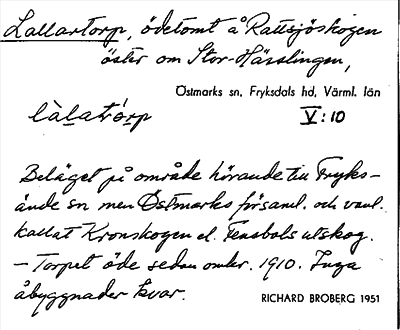 Lallartorp, ödetomt å Rattsjöskogen
öster om Stor-Hässlingen,
Östmarks sn, Fryksdals hd, Värml. län
làlatórp V:10
Beläget på område hörande till Fryks-
ände sn men Östmarks församl. och vanl.
kallat Kronskogen el. Fensbols utskog.
– Torpet öde sedan omkr. 1910. Inga
åbyggnader kvar.
RICHARD BROBERG 1951